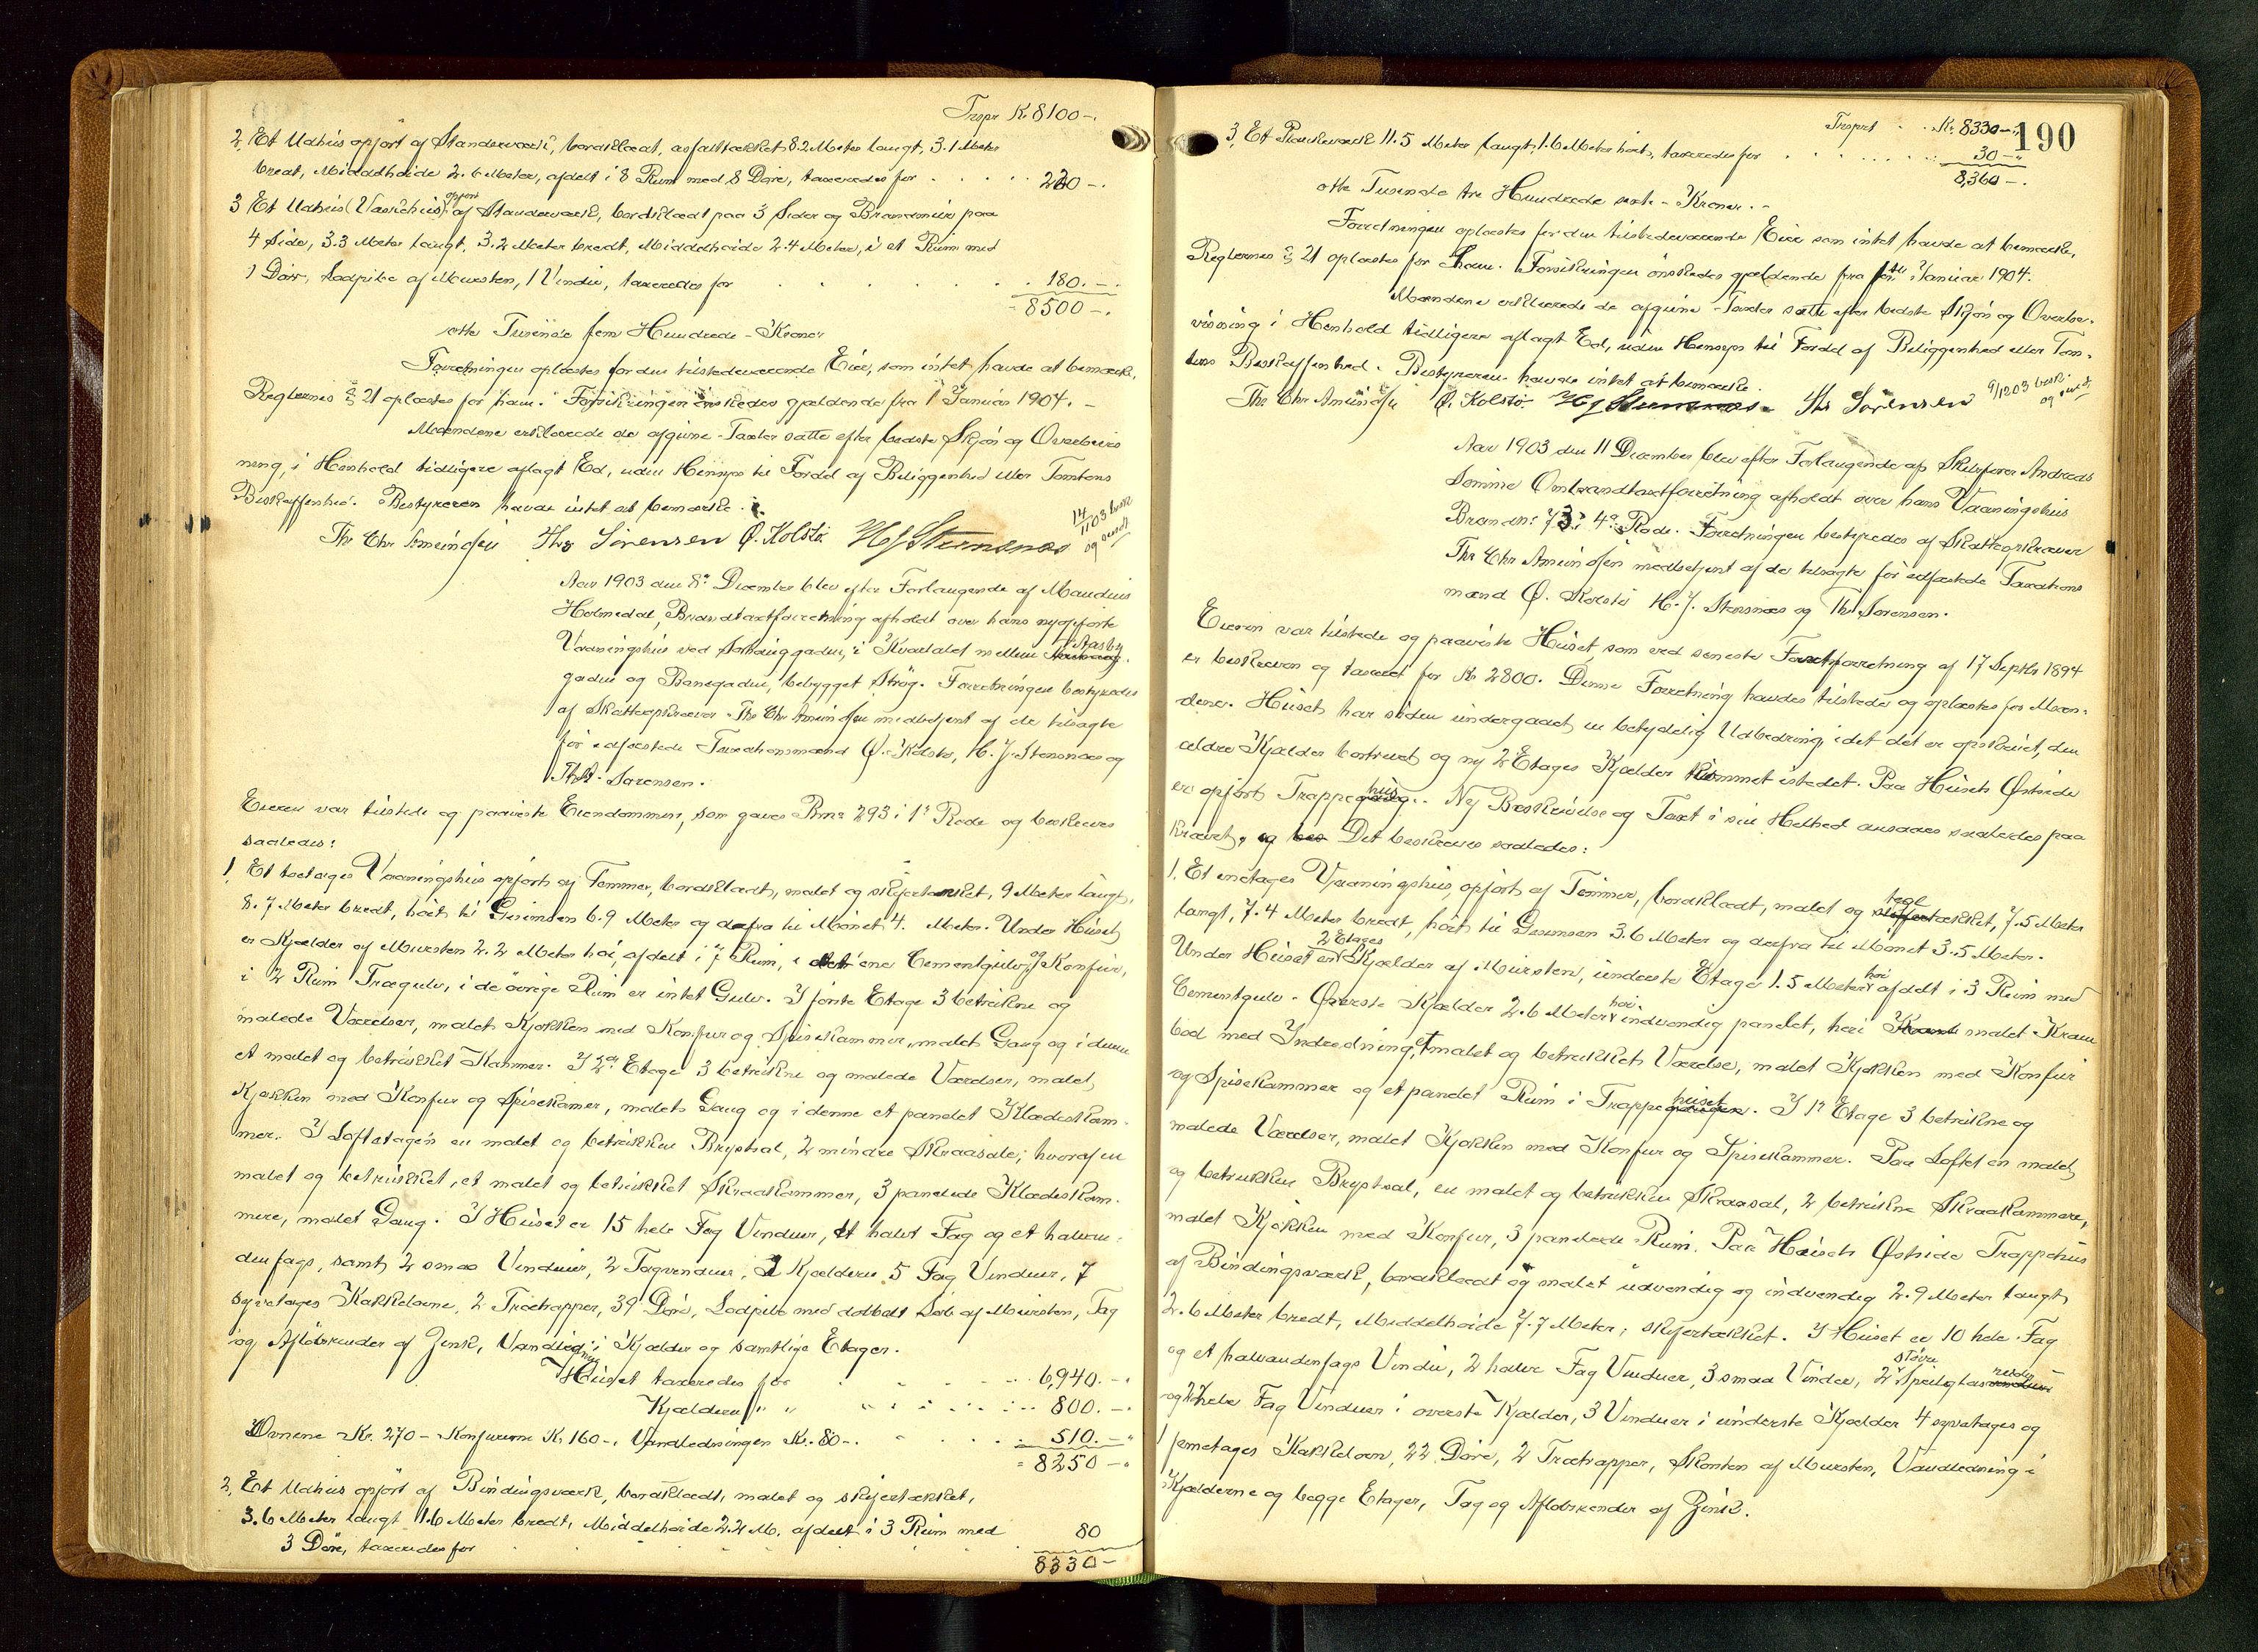 Transp. Kr. 8100 -.
2, Et Udhus opført af Standerværk, bordklædt, asfalttækket 8.2 Meter langt, 3.1 Meter
bredt, Middelhøide 2.6 Meter, afdelt i 8 Rum med 8 Døre, taxeredes for . . . . . 220 -.
3 Et Udhus (Vaskehus) opført af Standerværk, bordklædt paa 3 Sider og Brandmur paa
4 Side, 3.3 Meter langt, 3.2 Meter bredt, Middelhøide 2.4 Meter, i et Rum med
1 Dør, Ladpibe af Mursten, 1 Vindu, taxeredes for . . . . . . 180. -.
8500 -.
otte Tusinde fem Hundrede - Kroner
Forretningen oplæstes for den tilstedeværende Eier, som intet havde at bemærke,
Reglernes § 21 oplæstes for ham. Forsikringen ønskedes gjældende fra 1 Januar 1904. -
Mændene erklærede de afgivne Taxter satte efter bedste Skjøn og Overbevis
ning, i Henhold tidligere aflagt Ed, uden Hensyn til Fordel af Beliggenhed eller Tomtens
Beskaffenhed. Bestyreren havde intet at bemærke.
Ths Chr Amundsen Ths Sørensen Ø. Kolstø HJ Stensnæs 14/11 03 besk. og sendt
Aar 1903 den 8de December blev efter Forlangende af Maudius
Holmedal, Brandtaxtforretning afholdt over hans nyopførte
Vaaningshus ved gaden, i Kvartalet mellem Aasby
gaden og Banegaden, bebygget Strøg. Forretningen bestyredes
af Skatteopkræver Ths Chr Amundsen medbetjent af de tilsagte
før edfæstede Taxationsmænd Ø. Kolstø, H. J. Stensnæs og
Ths. Sørensen.
Eieren var tilstede og paaviste Eiendommen, som gaves Brno 293 i 1ste Rode og beskreves
saaledes:
1, Et toetages Vaaningshus opført af Tømmer, bordklædt, malet og skifertækket, 9 Meter langt,
8.7 Meter bredt, høit til Gesimsen 6.9 Meter og derfra til Mønet 4. Meter. Under Huset
er Kjælder af Mursten 2.2 Meter høi, afdelt i 7 Rum, i det ene Cementgulv og Komfur,
i 2 Rum Trægulv, i de øvrige Rum er intet Gulv. I første Etage 3 betrukne og
malede Værelser, malet Kjøkken med Komfur og Spisekammer, malet Gang og i denne
et malet og betrukket Kammer. I 2den Etage 3 betrukne og malede Værelser, malet
Kjøkken med Komfur og Spisekamer, malet Gang og i denne et panelet Klædeskam-
mer. I Loftetagen en malet og betrukken Brystsal, 2 mindre Skraasale, hvoraf en
malet og betrukket, et malet og betrukket Skraakammer, 3 panelede Klædeskam-
mere, malet Gang. I Huset er 15 hele Fag Vinduer, et halvt Fag og et halvan-
denfags, samt 2 smaa Vinduer, 2 Tagvinduer, I Kjælderen 5 Fag Vinduer, 7
syvetages Kakkelovne, 2 Trætrapper, 39 Døre, Ladpibe med dobbelt Løb af Mursten, Tag
og Afløbsrender af Zink, Vandledning i Kjælder og samtlige Etager.
Huset taxeredes for . . . . . 6,940. -.
Kjælderen " " . . . . . 800. -.
Ovnene Kr. 270 - Komfurerne Kr. 160 -. Vandledningen Kr. 80 -. . . . 510. -
8250 -.
2, Et Udhus opført af Bindingsværk, bordklædt, malet og skifertækket,
3.6 Meter langt 1.6 Meter bredt, Middelhøide 2.2 M. afdelt i 3 Rum med
3 Døre, taxeredes for . . . . . 80
8330 -
Transport . . Kr. 8330 -.
190
3, Et Plankeværk 11.5 Meter langt, 1.6 Meter høit, taxeredes for . . . . . . 30 -.
8,360 -.
otte Tusinde tre Hundrede seksti - Kroner. -
Forretningen oplæstes for den tilstedeværende Eier som intet havde at bemærke,
Reglernes § 21 oplæstes for ham. Forsikringen ønskedes gjældende fra 1ste Januar 1904.
Mændene erklærede de afgivne Taxter satte efter bedste Skjøn og Overbe-
visning i Henhold tidligere aflagt Ed, uden Hensyn til Fordel af Beliggenhed eller Tom-
tens Beskaffenhed. Bestyreren havde intet at bemærke.
Ths Chr Amundsen Ø. Kolstø HJ Stensnæs Ths Sørensen 9/12 03 besk. og sendt
Aar 1903 den 11 December blev efter Forlangende af Skibsfører Andreas
Sømme Ombrandtaxtforretning afholdt over hans Vaaningshus
Brandn: 73 i 4de Rode. Forretningen bestyredes af Skatteopkræver
Ths Chr Amundsen medbetjent af de tilsagte før edfæstede Taxations
mænd Ø. Kolstø H. J. Stensnæs og Ths Sørensen.
Eieren var tilstede og paaviste Huset som ved seneste Taxtforretning af 17 Septbr 1894
er beskreven og taxeret for Kr 2800. Denne Forretning havdes tilstede og oplæstes for Mæn-
dene. Huset har siden undergaaet en betydelig Udbedring, idet det er opskruet, den
ældre Kjælder bortrevet og ny 2 Etages Kjælder kommet istedet. Paa Husets Østside
er opført Trappehus. Ny Beskrivelse og Taxt i sin Helhed ansaaes saaledes paa
krævet, og Det beskreves saaledes:
1, Et enetages Vaaningshus, opført af Tømmer, bordklædt, malet og tegltækket, 7.5 Meter
langt, 7.4 Meter bredt, høit til Gesimsen 3.6 Meter og derfra til Mønet 3.5 Meter.
Under Huset er 2 Etages Kjælder af Mursten, underste Etage 1.5 Meter høi afdelt i 3 Rum med
Cementgulv. Øverste Kjælder 2.6 Meter høi indvendig panelet, heri malet Kram
bod med Indredning, et malet og betrukket Værelse, malet Kjøkken med Komfur
og Spisekammer og et panelet Rum i Trappehuset. I 1ste Etage 3 betrukne og
malede Værelser, malet Kjøkken med Komfur og Spisekammer. Paa Loftet en malet
og betrukken Brystsal, en malet og betrukken Skraasal, 2 betrukne Skraakammere,
malet Kjøkken med Komfur, 3 panelede Rum. Paa Husets Østside Trappehus
af Bindingsværk, bordklædt og malet udvendig og indvendig 2.9 Meter langt
2.6 Meter bredt, Middelhøide 7.7 Meter, skifertækket. I Huset er 10 hele Fag
og et halvandenfags Vindu, 2 halve Fag Vinduer, 3 smaa Vinder, 2 større Speilglasruder
og 2 hele Fag Vinduer i øverste Kjælder, 3 Vinduer i underste Kjælder 4 syvetages og
1 femetages Kakkelovn, 22 Døre, 2 Trætrapper, Skorsten af Mursten, Vandledning i
Kjælderne og begge Etager, Tag og Afløbsrender af Zink.